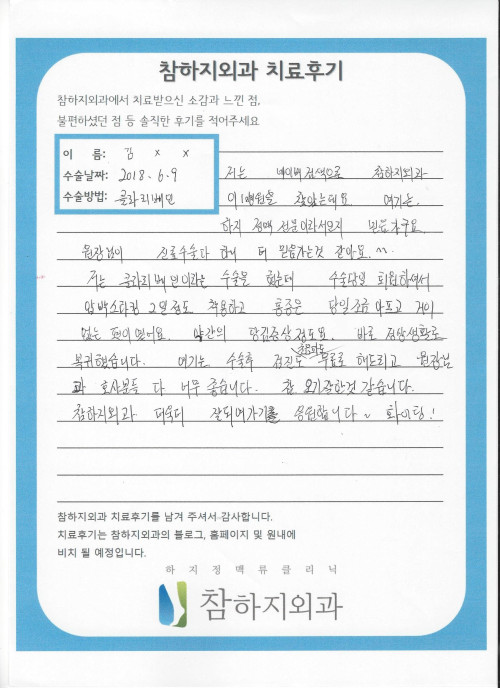 참하지외과 치료후기
참하지외과에서 치료받으신 소감과 느낀 점,
불편하셨던 점 등 솔직한 후기를 적어주세요
이 름: 김 x x
수술날짜: 2018. 6. 9
수술방법: 클라리베인
저는 네이버 검색으로 참하지외과
이 병원을 찾았는데요. 여기는.
하지 정맥 전문이라서요 믿음가구요.
원장님이 진료수술다 하니 더 믿음가는것 같아요. ^^.
저는 클라리베인이라는 수술을 했는데 수술당일 퇴원하여서
압박스타킹 2일정도 착용하고 통증은 당일조금 아프고 거의
없는 편이였어요. 약간의 당김증상정도요. 바로 정상생활로
복귀했습니다. 여기는 수술후 검진도 무료로 해드리고 원장님
과 호사분들 다 너무 좋습니다. 참 오기잘한것 같습니다.
참하지외과 더욱더 잘되어가기를 응원합니다~ 화이팅!
참하지외과 치료후기를 남겨 주셔서 감사합니다.
치료후기는 참하지외과의 블로그, 홈페이지 및 원내에
비치 될 예정입니다.
하지정맥류클리닉
참하지외과